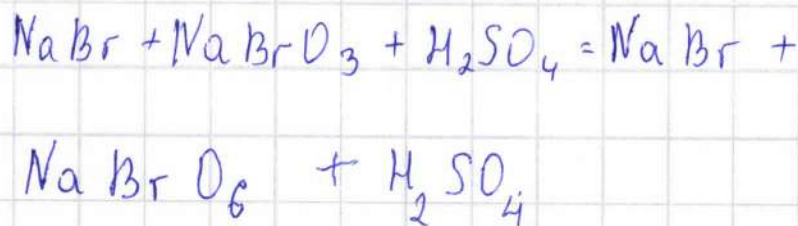 NaBr + NaBrO₃ + H₂SO₄ = NaBr +
NaBrO₆ + H₂SO₄